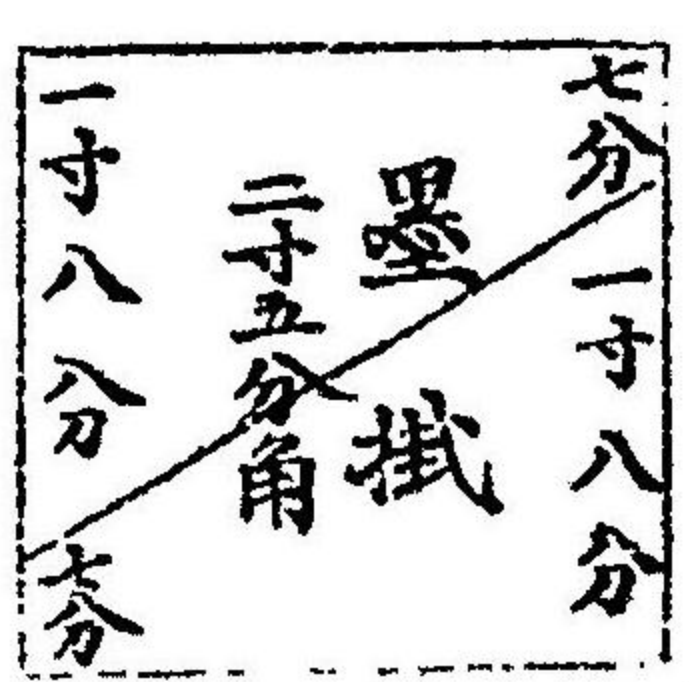 七分
一寸八分
墨掛
二寸五分角
一寸八分
七分